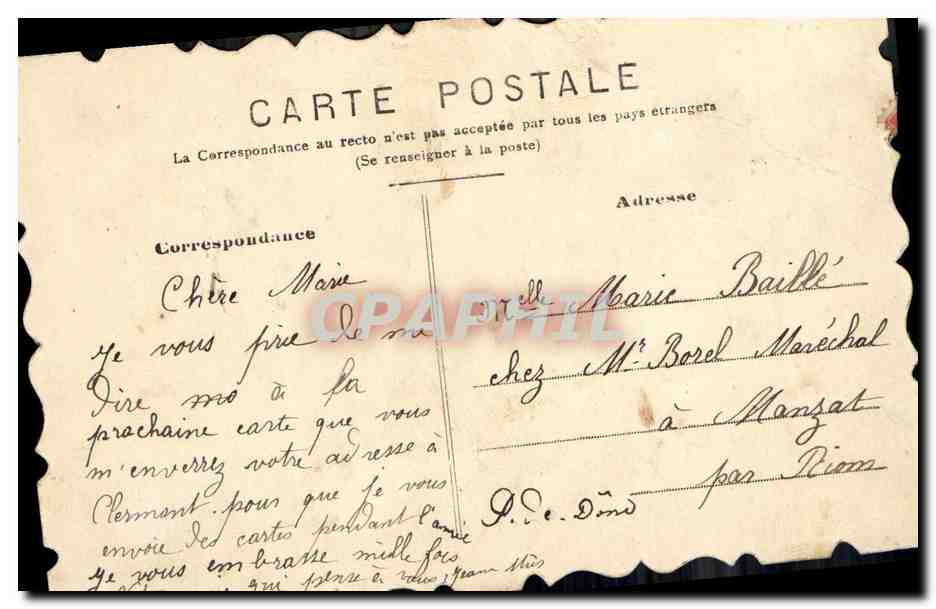 CARTE POSTALE
La Correspondance au recto n'est pas acceptée par tous les pays étrangers
(Se renseigner à la poste)
Correspondance
Chère Marie
Je vous prie de me
dire mo à la
prochaine carte que vous
m'enverrez votre adresse à
Clermont pour que je vous
envoie des cartes pendant l'année
Je vous embrasse mille fois
qui pense à vous, Jeanne
Adresse
Melle Marie Baillé
chez Mr Borel Maréchal
à Manzat
par Riom
P. de. Dôme
CPAPHIL